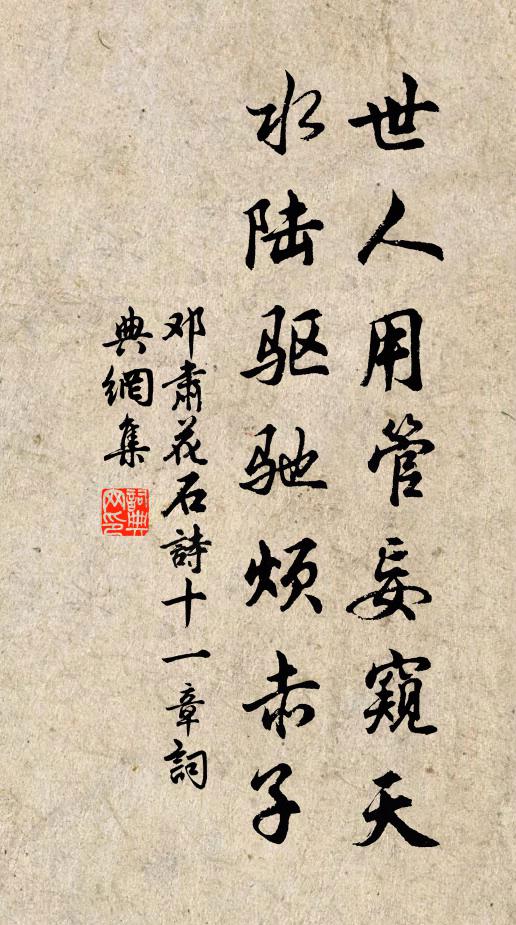 世人用管妄窥天
水陆驱驰烦赤子
邓肃花石詩十一章詞
典網集
詞典
网印